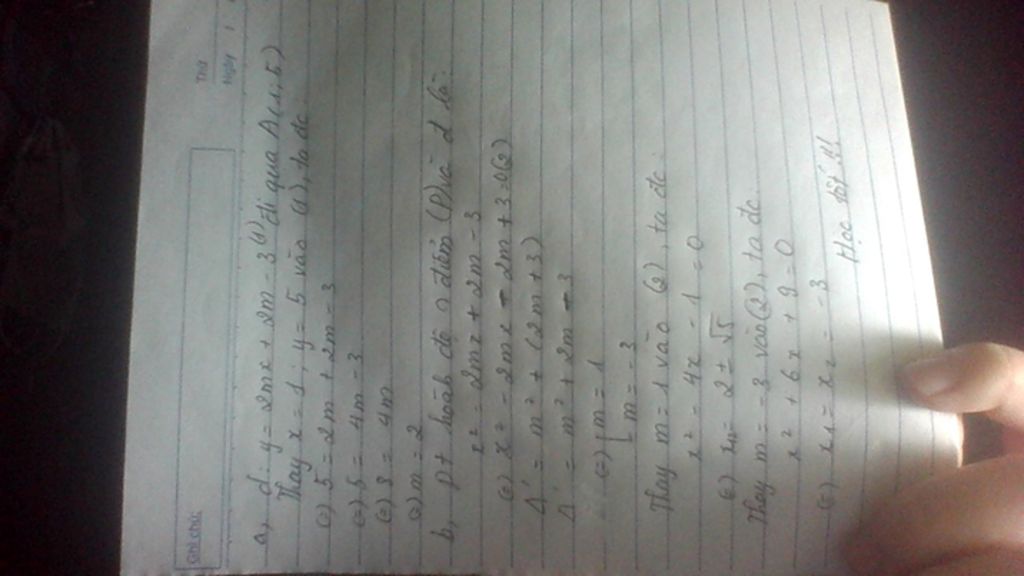 Ghi chú:
Thứ
Ngày
a, d: y = 2mx + 2m - 3 (1) đi qua A(1;5)
Thay x = 1; y = 5 vào (1), ta đc
(=) 5 = 2m + 2m - 3
(=) 5 = 4m - 3
(=) 8 = 4m
(=) m = 2
b, pt hoành độ điểm (P) và d là:
x² = 2mx + 2m - 3
(=) x² - 2mx - 2m + 3 = 0 (2)
Δ' = m² + (2m + 3)
Δ' = m² + 2m - 3
(=) [ m = 1
m = -3
Thay m = 1 vào (2), ta đc:
x² - 4x - 1 = 0
(=) = 2 ± √5
Thay m = -3 vào (2), ta đc
x² + 6x + 9 = 0
(=) x1 = x2 = -3
Học tốt!!